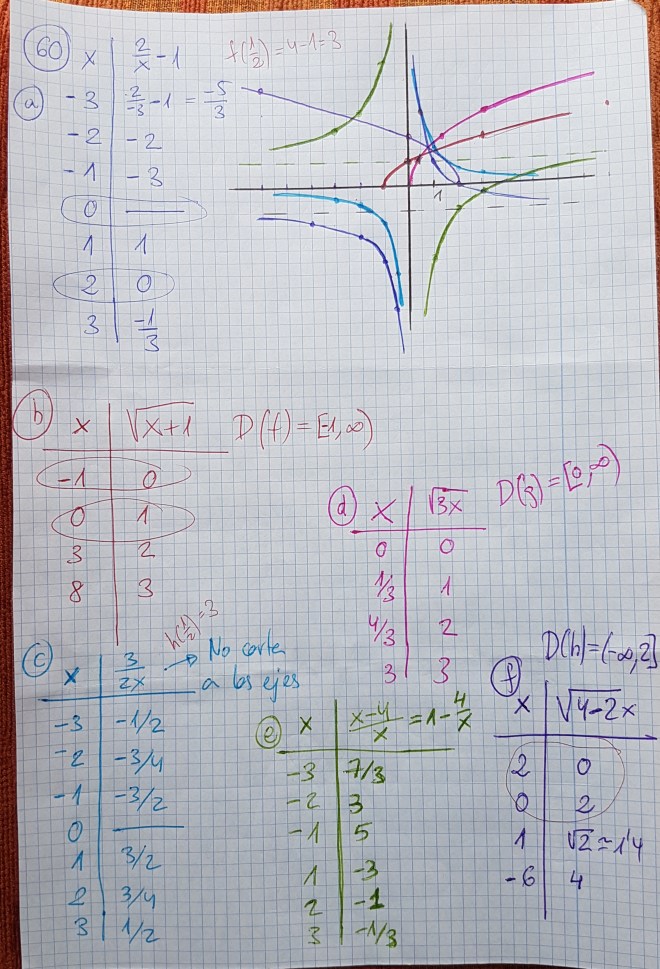 60
x | 2/x - 1
f(1/2) = 4-1 = 3
a
-3 | 2/-3 - 1 = -5/3
-2 | -2
-1 | -3
0 | —
1 | 1
2 | 0
3 | -1/3
1
b
x | √x+1
D(f) = [-1, ∞)
-1 | 0
0 | 1
3 | 2
8 | 3
d
x | √3x
D(g) = [0, ∞)
0 | 0
1/3 | 1
4/3 | 2
3 | 3
c
x | 3/2x → No corta
a los ejes
h(1/2) = 3
-3 | -1/2
-2 | -3/4
-1 | -3/2
0 | —
1 | 3/2
2 | 3/4
3 | 1/2
e
x | x-4/x = 1 - 4/x
-3 | 7/3
-2 | 3
-1 | 5
1 | -3
2 | -1
3 | -1/3
D(h) = (-∞, 2]
f
x | √4-2x
2 | 0
0 | 2
1 | √2 ≃ 1'4
-6 | 4